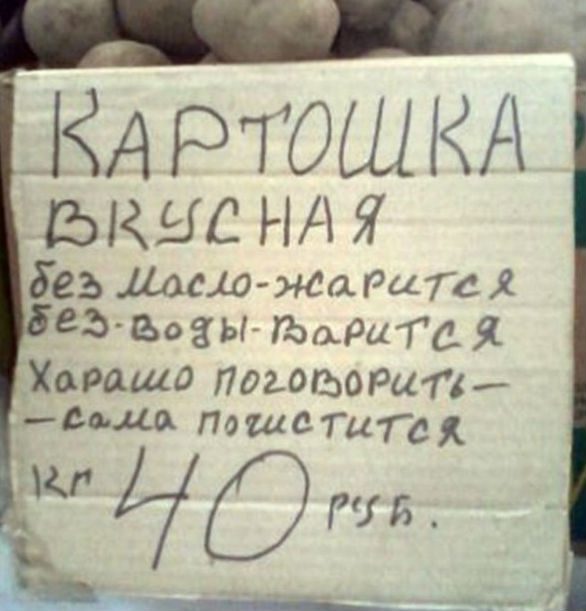 КАРТОШКА
ВКУСНАЯ
без Масло-жарится
без-воды-варится
Харашо поговорить-
-сама почистится
кг 40 руб.